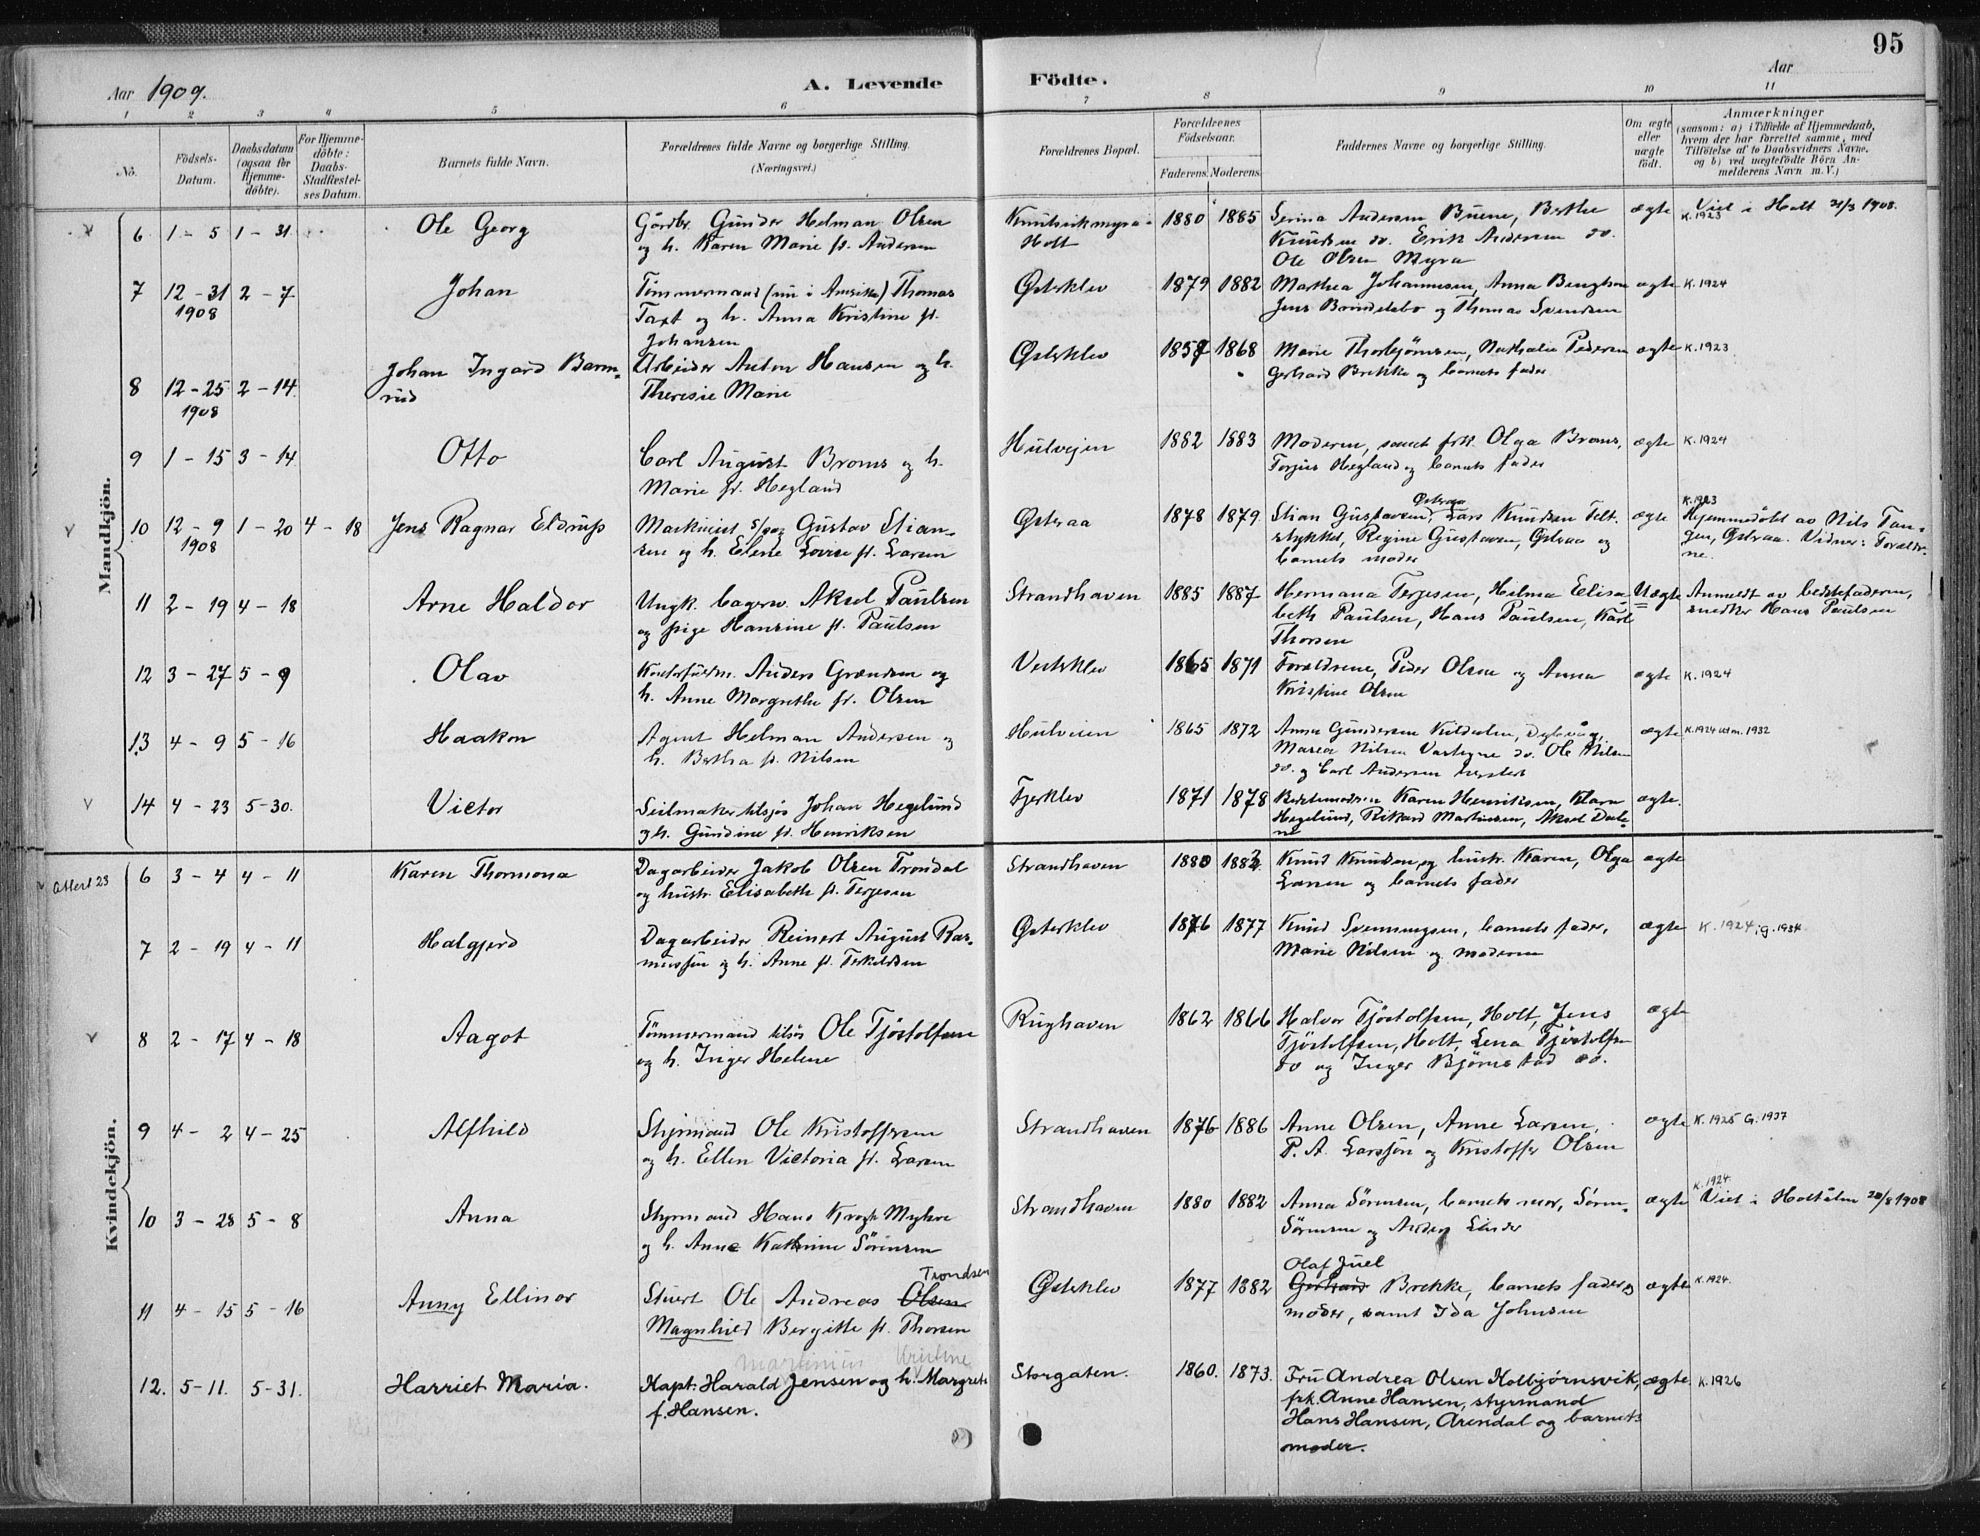 95
Aar 1909.
A. Levende
Födte.
Aar
1 2 3 4 5 6 7 8 9 10 11
No.
Födsels-
Datum.
Daabsdatum
(ogsaa for
Hjemme-
döbte).
For Hjemme-
döbte:
Daabs-
Stadfæstel-
ses Datum.
Barnets fulde Navn.
Forældrenes fulde Navne og borgerlige Stilling.
(Næringsvei.)
Forældrenes Bopæl.
Forældrenes
Födselsaar.
Faderens. Moderens.
Faddernes Navne og borgerlige Stilling.
Om ægte
eller
uægte
født.
Anmærkninger
(saasom: a) i Tilfælde af Hjemmedaab,
hvem der har forrettet samme, med
Tilföielse af to Daabsvidners Navne,
og b) ved uægtefödte Börn An-
melderens Navn m. V.)
Mandkjön.
6 1 - 5 1 - 31 Ole Georg
Gårdbr. Gunder Helman Olsen
og h. Karen Marie f. Andersen
Holt
1880 1885
Serina Andersen Buene, Berthe
Knudsen do. Erik Andersen do.
Ole Olsen Myra
ægte
Viet i Holt 21/3 1908.
K. 1923
7 12 - 31 2 - 7 Johan
1908
Tömmermand (nu i Amerika) Thomas
Taxt og h. Anna Kristine f.
Johansen
Østerklev 1879 1882
Mathea Johannesen, Anna Bengtson
Jens Brindelsbo og Thomas Svendsen
ægte K. 1924
8 12 - 25 2 - 14
1908
Johan Ingard Barm-
rud
Arbeider Anton Hansen og h.
Theresie Marie
Østerklev 1868
Marie Thorbjørnsen, Nathalie Pedersen
Gerhard Brekke og barnets fader
ægte K. 1923
9 1 - 15 3 - 14 Otto
Carl August Broms og h.
Marie f. Hegland
Hulvejen 1882 1883
Moderen, samt frk. Olga Broms,
Terjus Hegland og barnets fader
ægte K. 1924
10 12 - 9 1 - 20 4 - 18 Jens Ragnar Eldrup
1908
Maskinist Gustav Stian-
sen og h. Elene Lovise f. Larsen
Østeraa 1878 1879
Østeraa
Stian Gustavsen, Lars Knudsen Telt-
stykket, Regine Gustavsen, Østeraa og
barnets moder
ægte
K. 1923
Hjemmedøbt av Nils Tan-
gen, Østraa. Vidner: Forældre-
ne.
11 2 - 19 4 - 18 Arne Haldor
Ungk. Aksel Paulsen
og pige Hansine f. Paulsen
Strandhaven 1885 1887
Hermana Terjesen, Helma Elisa-
beth Paulsen, Hans Paulsen, Karl
Thorsen
Uægte
Anmeldt av bedstefaderen,
snedker Hans Paulsen
12 3 - 27 5 - 9 Olav
Anders Grændsen og
h. Anne Margrethe f. Olsen
Vesterklev 1865 1871
Forældrene, Peder Olsen og Anna
Kristine Olsen
ægte K. 1924
13 4 - 9 5 - 16 Haakon
Agent Helman Andersen og
h. Bertha f. Nilsen
Hulveien 1865 1872
Anna Gundersen Kildalen, Dybvåg,
Maria Nilsen do. Ole Nilsen
do. og Carl Andersen
ægte K. 1924 utm. 1932
14 4 - 23 5 - 30. Victor
Seilmaker tilsjøs Johan Hegelund
og h. Gundine f. Henriksen
Tjerklev 1871 1878
Bedstemoderen Karen Henriksen, Klara
Hegelund, Rikard Martinsen, Aksel Dale-
ne
ægte.
Kvindekjön.
Attest 23
6 3 - 4 4 - 11 Karen Thormona
Dagarbeider Jakob Olsen Trondal
og hustr. Elisabeth f. Terjesen
Strandhaven 1880
Knud Knudsen og hustr. Karen, Olga
Larsen og barnets fader
ægte
7 2 - 19 4 - 11 Halgjerd
Dagarbeider Reinert August Ras-
mussen og h. Anne f. Terkeldsen
Østerklev 1876 1877
Knud Svenningsen, barnets fader,
Marie Nilsen og moderen
ægte K. 1924, g. 1934
8 2 - 17 4 - 18 Aagot
Tömmermand tilsjøs Ole Tjöstolfsen
og h. Inger Helene
Rughaven 1862 1866
Halvor Tjöstolfsen, Holt, Jens
Tjöstolfsen, Holt, Lena Tjöstolfsen
do og Inger Bjørnstad do.
ægte
9 4 - 2 4 - 25 Alfhild
Styrmand Ole Kristoffersen
og h. Ellen Victoria f. Larsen
Strandhaven 1876 1886
Anne Olsen, Anne Larsen,
P. A. Larssön og Kristoffer Olsen
ægte K. 1925 G. 1937
10 3 - 28 5 - 8 Anna
Styrmand Hans Krogh Myhre
og h. Anne Kathrine Sörensen
Strandhaven 1880 1882
Anna Sörensen, barnets mor, Sören
Sörensen og Anders Linder
ægte
K. 1924
Viet i Holt 20/8 1908
11 4 - 15 5 - 16 Anny Ellinor
Trondsen
Stuert Ole Andreas Olsen
Magnhild Bergitte f. Thorsen
Østerklev 1877 1882
Olaf Juel
Gerhard Brekke, barnets fader og
moder, samt Ida Johnsen
ægte K. 1924.
12. 5-11. 5-31. Harriet Maria.
Martinius Kristine
Kapt. Harald Jensen og h. Margrete
f. Hansen.
Storgaten. 1860. 1873.
Fru Andrea Olsen Kolbjørnsvik,
frk. Anne Hansen, styrmand
Hans Hansen, Arendal og barnets
moder.
ægte. K. 1926